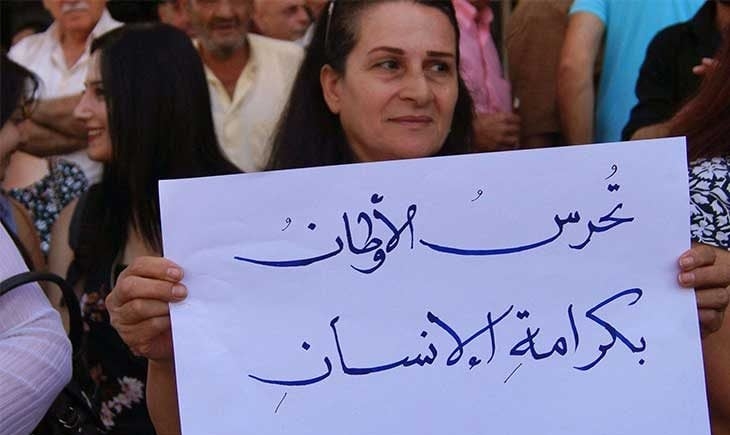 تُحرسُ الأوطانُ
بكرامةِ الإنسانِ